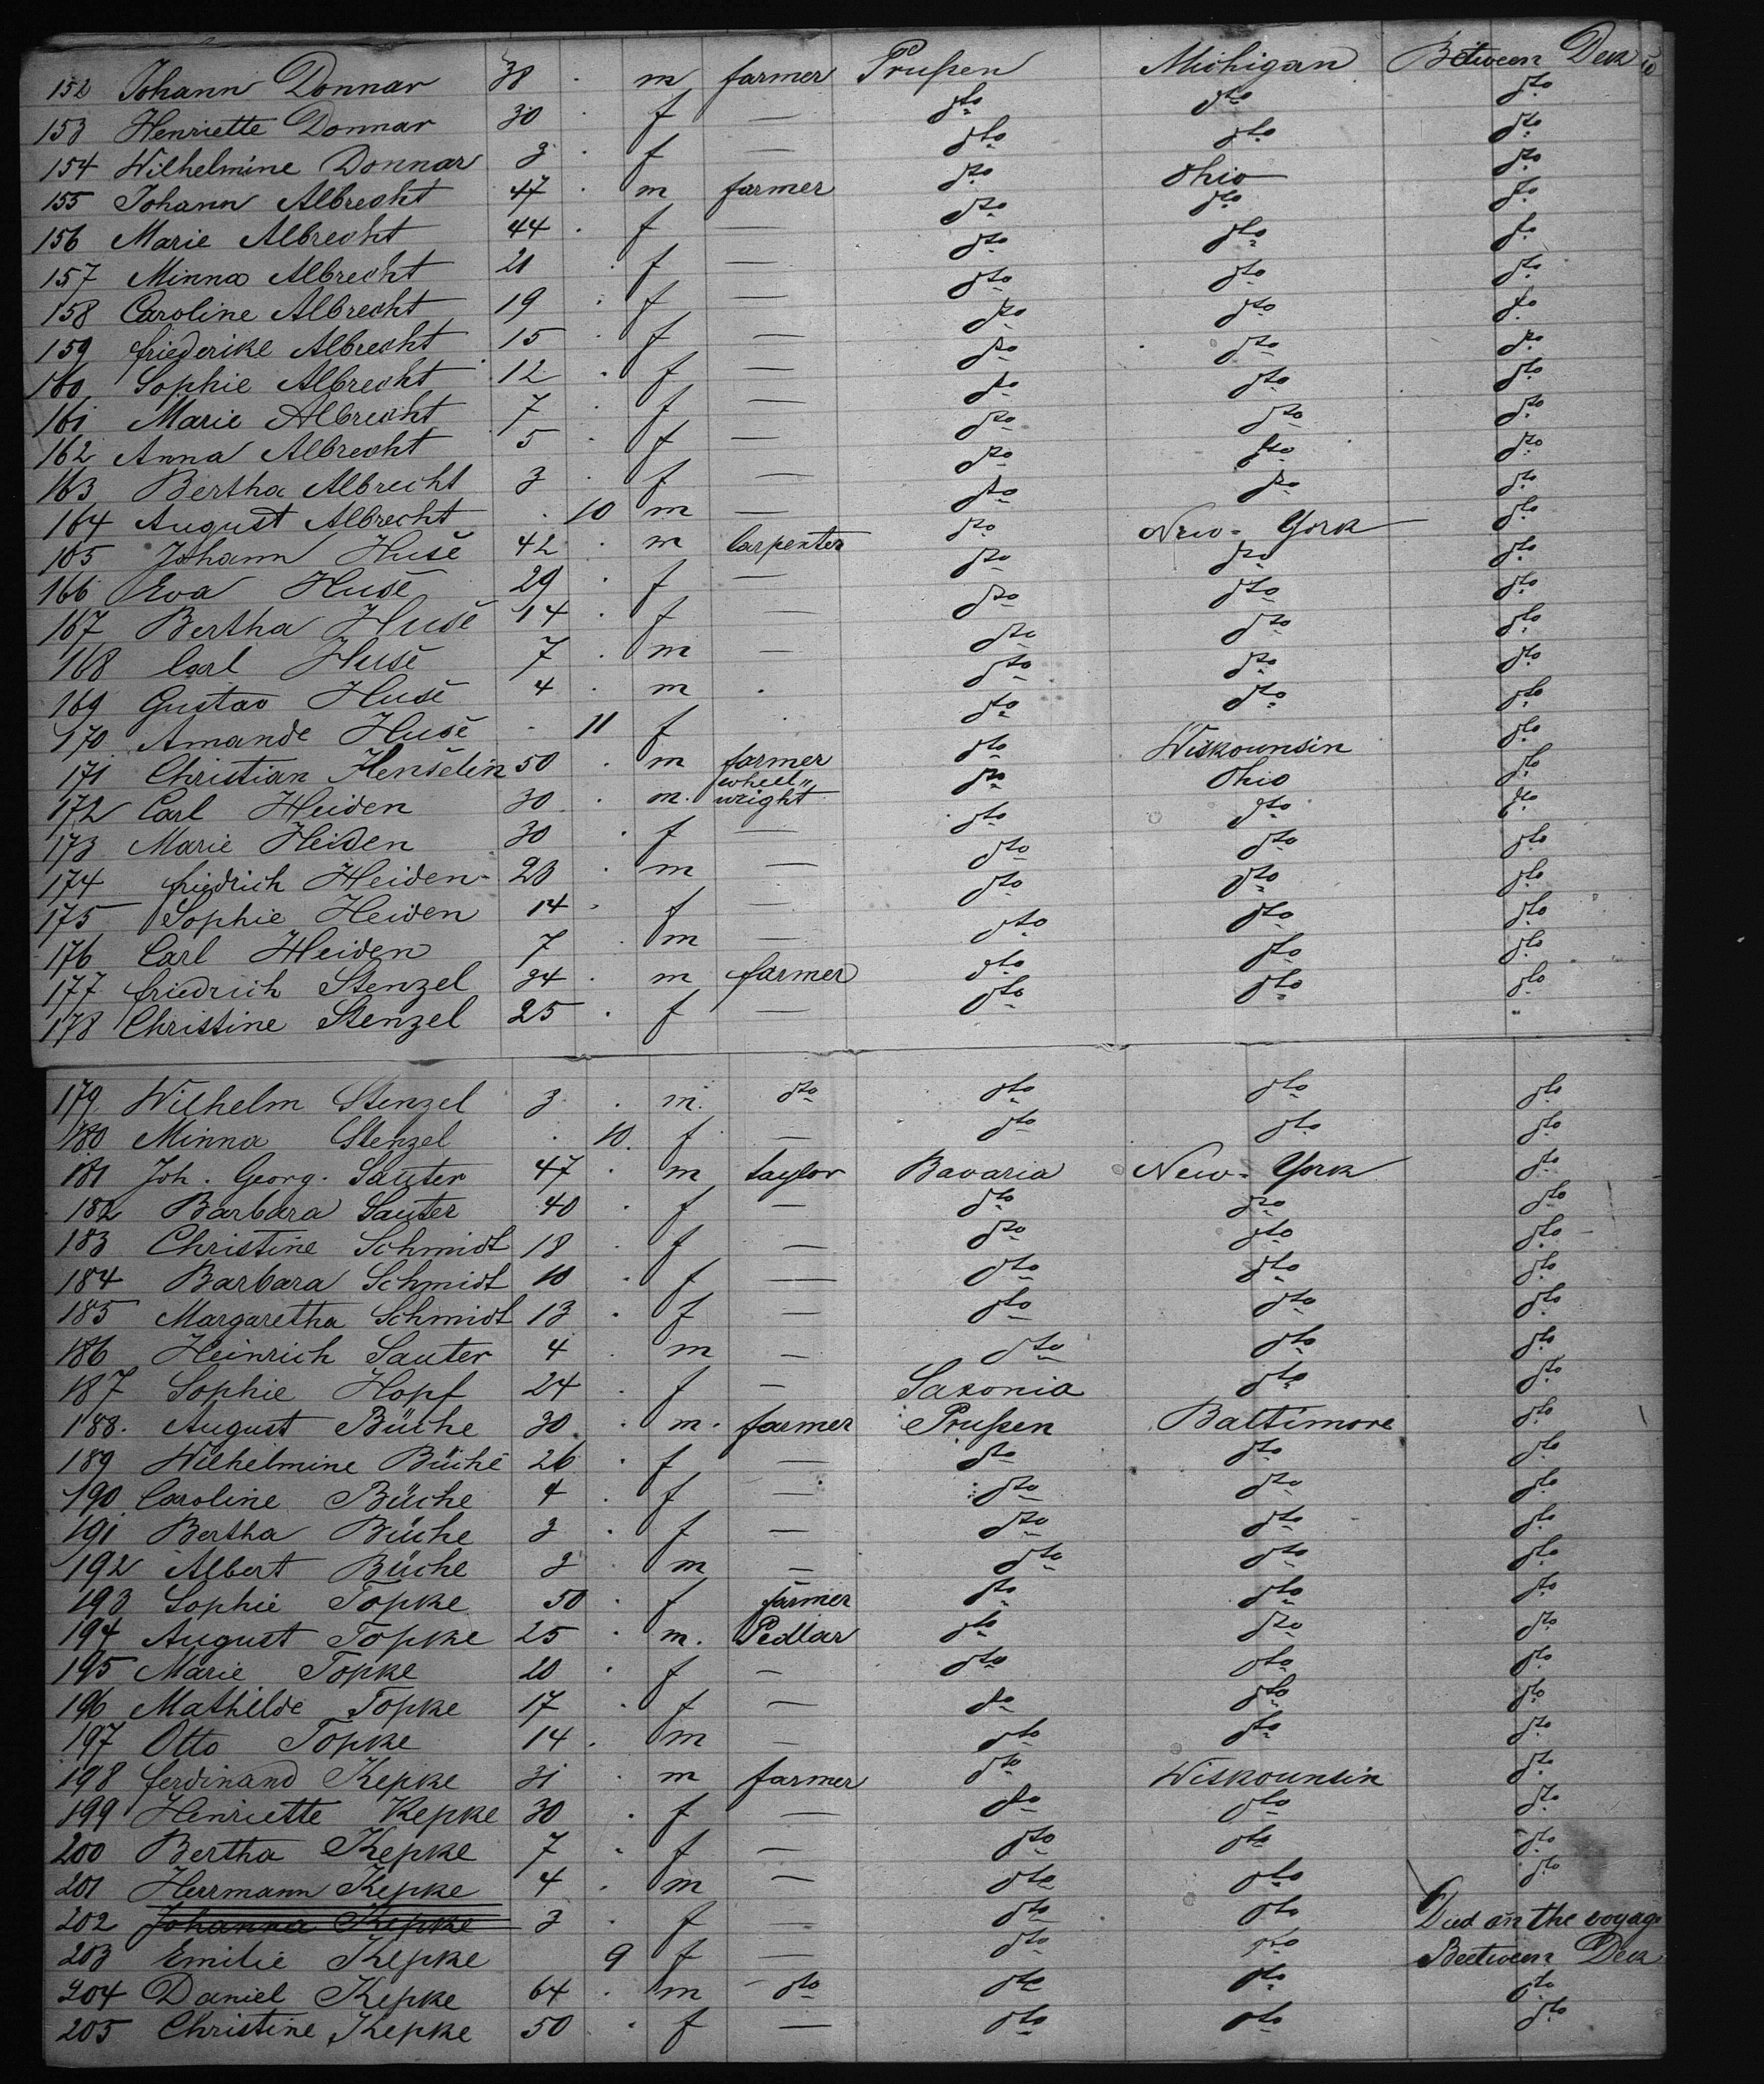 152 Johann Donnar 38 . m farmer Prußen Michigan Between Deck
153 Henriette Donnar 30 . f — dto dto dto
154 Wilhelmine Donnar 3 . f — dto dto dto
155 Johann Albrecht 47 . m farmer dto Ohio dto
156 Marie Albrecht 44 . f — dto dto dto
157 Minna Albrecht 21 . f — dto dto dto
158 Caroline Albrecht 19 . f — dto dto dto
159 friederike Albrecht 15 . f — dto dto dto
160 Sophie Albrecht 12 . f — dto dto dto
161 Marie Albrecht 7 . f — dto dto dto
162 Anna Albrecht 5 . f — dto dto dto
163 Bertha Albrecht 3 . f — dto dto dto
164 August Albrecht . 10 m — dto dto dto
165 Johann Huse 42 . m Carpenter dto New-York dto
166 Eva Huse 29 . f — dto dto dto
167 Bertha Huse 14 . f — dto dto dto
168 Carl Huse 7 . m — dto dto dto
169 Gustav Huse 4 . m . dto dto dto
170 Amande Huse . 11 f . dto dto dto
171 Christian Henselin 50 . m farmer dto Wiskounsin dto
172 Carl Heiden 30 . m. wheel„wright dto Ohio dto
173 Marie Heiden 30 . f — dto dto dto
174 friedrich Heiden 23 . m — dto dto dto
175 Sophie Heiden 14 . f — dto dto dto
176 Carl Heiden 7 . m — dto dto dto
177 friedrich Stenzel 34 . m farmer dto dto dto
178 Christine Stenzel 25 . f — dto dto dto
179 Wilhelm Stenzel 3 . m. dto dto dto dto
180 Minna Stenzel . 10. f — dto dto dto
181 Joh. Georg. Sauter 47 . m taylor Bavaria New-York dto
182 Barbara Sauter 40 . f — dto dto dto
183 Christine Schmidt 18 . f — dto dto dto
184 Barbara Schmidt 10 . f — dto dto dto
185 Margaretha Schmidt 13 . f — dto dto dto
186 Heinrich Sauter 4 . m — dto dto dto
187 Sophie Hopf 24 . f — Saxonia dto dto
188. August Büche 30 . m. farmer Prußen Baltimore dto
189 Wilhelmine Büche 26 . f — dto dto dto
190 Caroline Büche 4 . f — dto dto dto
191 Bertha Büche 3 . f — dto dto dto
192 Albert Büche 2 . m — dto dto dto
193 Sophie Topke 50 . f farmer dto dto dto
194 August Topke 25 . m. Pedlar dto dto dto
195 Marie Topke 20 . f — dto dto dto
196 Mathilde Topke 17 . f — dto dto dto
197 Otto Topke 14 . m — dto dto dto
198 ferdinand Kepke 31 . m farmer dto Wiskounsin dto
199 Henriette Kepke 30 . f — dto dto dto
200 Bertha Kepke 7 . f — dto dto dto
201 Herrmann Kepke 4 . m — dto dto dto
202 Johanna Kepke 3 . f — dto dto Died on the voyage
203 Emilie Kepke 9 f — dto dto Beetween Deck
204 Daniel Kepke 64 . m dto dto dto dto
205 Christine Kepke 50 . f — dto dto dto